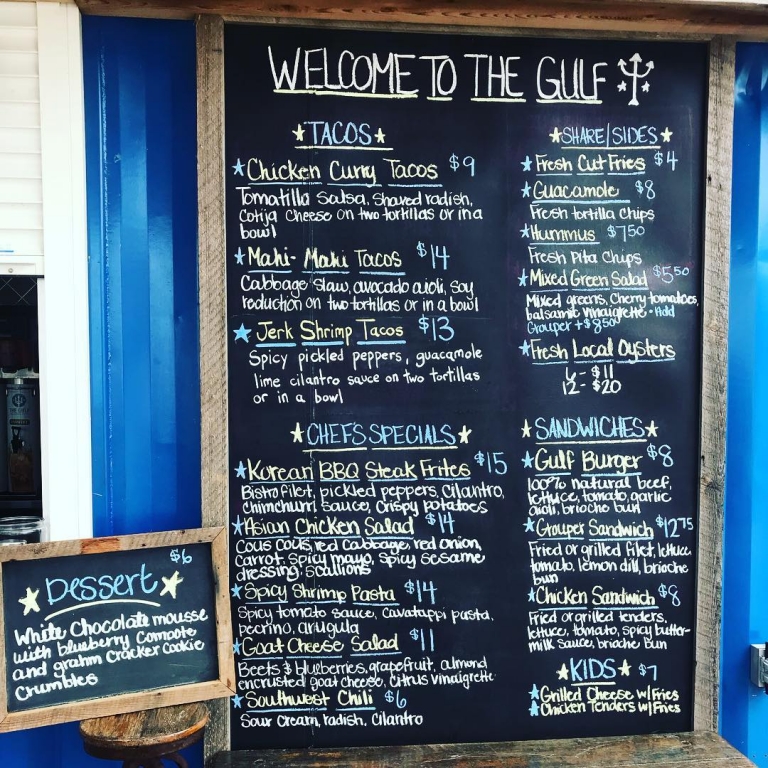 WELCOME TO THE GULF
TACOS
Chicken Curry Tacos $9
Tomatilla Salsa, Shaved radish,
Cotija Cheese on two tortillas or in a
bowl
Mahi-Mahi Tacos $14
Cabbage Slaw, avocado aioli, soy
reduction on two tortillas or in a bowl
Jerk Shrimp Tacos $13
Spicy pickled peppers, guacamole
lime cilantro sauce on two tortillas
or in a bowl
CHEF'S SPECIALS
Korean BBQ Steak Frites $15
Bistro filet, pickled peppers, cilantro,
chimichurri sauce, crispy potatoes
Asian Chicken Salad $14
Cous Cous, red cabbage, red onion,
carrot, spicy mayo, spicy sesame
dressing, scallions
Spicy Shrimp Pasta $14
Spicy tomato sauce, cavatappi pasta,
pecrino, arugula
Goat Cheese Salad $11
Beets & blueberries, grapefruit, almond
encrusted goat cheese, citrus vinaigrette
Southwest Chili $6
Sour Cream, radish, cilantro
SHARE/SIDES
Fresh Cut Fries $4
Guacamole $8
Fresh tortilla chips
Hummus $7.50
Fresh Pita Chips
Mixed Green Salad $5.50
Mixed greens, Cherry tomatoes,
balsamic vinaigrette - Add
Grouper + $8.50
Fresh Local Oysters
6 - $11
12 - $20
SANDWICHES
Gulf Burger $8
100% natural beef,
lettuce, tomato, garlic
aioli, brioche bun
Grouper Sandwich $12.75
Fried or grilled filet, lettuce
tomato, lemon dill, brioche
bun
Chicken Sandwich $8
Fried or grilled tenders,
lettuce, tomato, spicy butter-
milk sauce, brioche bun
KIDS $7
Grilled Cheese w/ Fries
Chicken Tenders w/ Fries
$6
Dessert
White Chocolate mousse
with blueberry Compote
and grahm cracker cookie
Crumbles